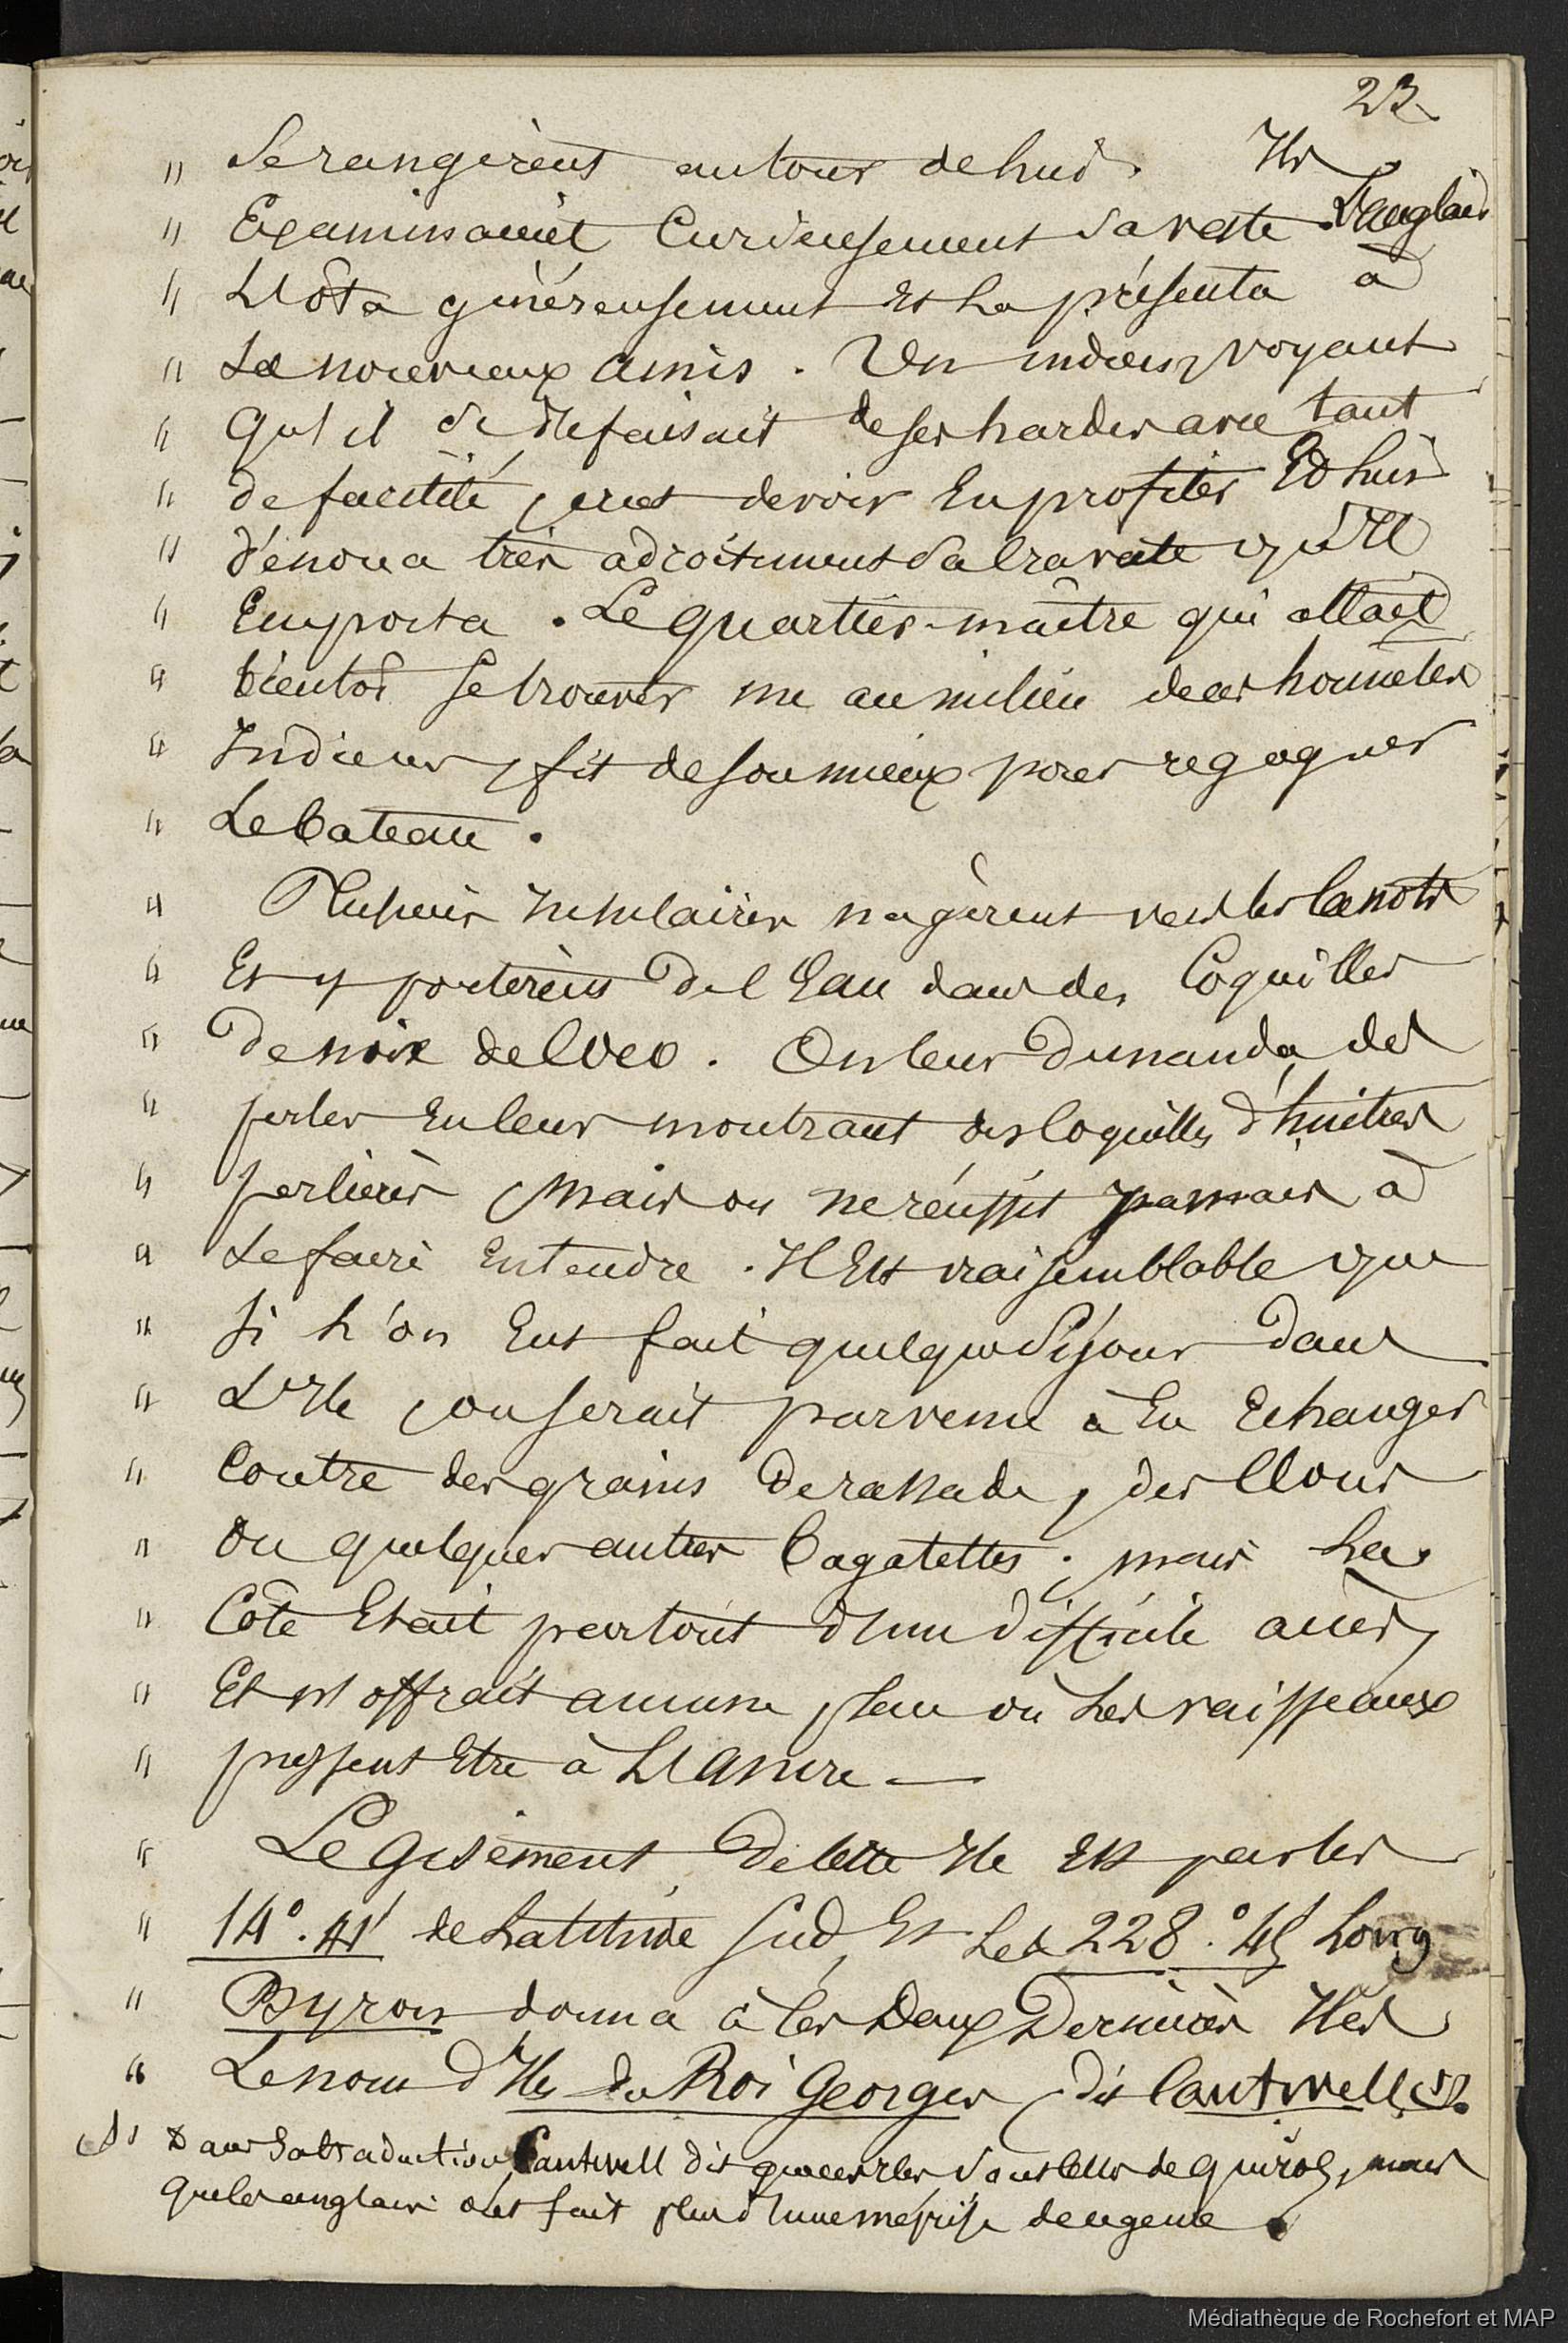 23
" Se rangèrent autour de lui. Ils
" Examinaient Curieusement sa veste. L'anglais
" L'ôta généreusement et la présenta à
" Ses nouveaux amis. Un indien, voyant
" Qu'il se défaisait de ses hardes avec tant
" de facilité, crut devoir En profiter Et lui
" dénoua très adroitement sa Cravate qu'Il
" Emporta. Le quartier-maître qui allait
" bientôt se trouver nu au milieu de ces honnêtes
" Indiens, fit de son mieux pour regagner
" Le bateau.
" Plusieurs Insulaires nagèrent vers les Canots
" Et y portèrent De l'Eau dans des Coquilles
" De noix de Coco. On leur Demanda des
" perles En leur montrant des Coquilles d'huitres
" perlières, Mais on ne réussit jamais à
" Se faire Entendre. Il Est vraisemblable que
" Si l'on Eut fait quelque Séjour Dans
" L'Ile, on serait parvenu à En Echanger
" Contre des grains De rassade, des Clous
" Ou quelques autres bagatelles; mais La
" Côte Etait partout d'un difficile accès,
" Et n'offrait aucun lieu où Les vaisseaux
" pussent Etre à L'Ancre —
" Le Gisement De Cette Ile Est par les
" 14°. 41' de Latitude Sud Et Les 228.° 45' Long
" Byron donna à Ces Deux Dernières Iles
" Le nom d'Iles du Roi Georges, dit Cantwell
Dans Sa traduction Cantwell dit que ces Iles Sont Celles de quiros, mais
que les anglais ont fait plus d'une méprise de ce genre.
Médiathèque de Rochefort et MAP